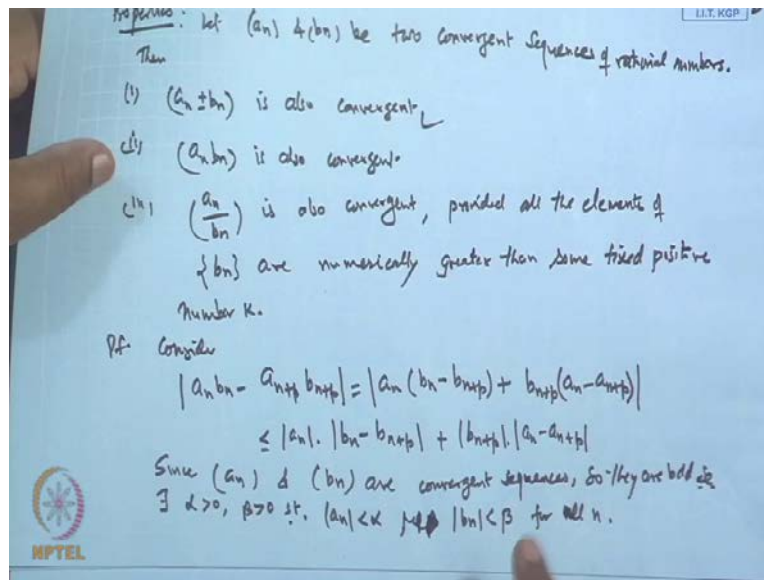 I.I.T. KGP
Properties: Let (an) & (bn) be two convergent sequences of rational numbers.
Then
(i) (an ± bn) is also convergent
(ii) (an bn) is also convergent.
(iii) (an/bn) is also convergent, provided all the elements of
{bn} are numerically greater than some fixed positive
number K.
Pf. Consider
|an bn - an+p bn+p| = |an (bn - bn+p) + bn+p (an - an+p)|
≤ |an|. |bn - bn+p| + |bn+p|. |an - an+p|
Since (an) & (bn) are convergent sequences, so they are bdd ie
∃ α>0, β>0 st. |an| < α |bn| < β for all n.
NPTEL